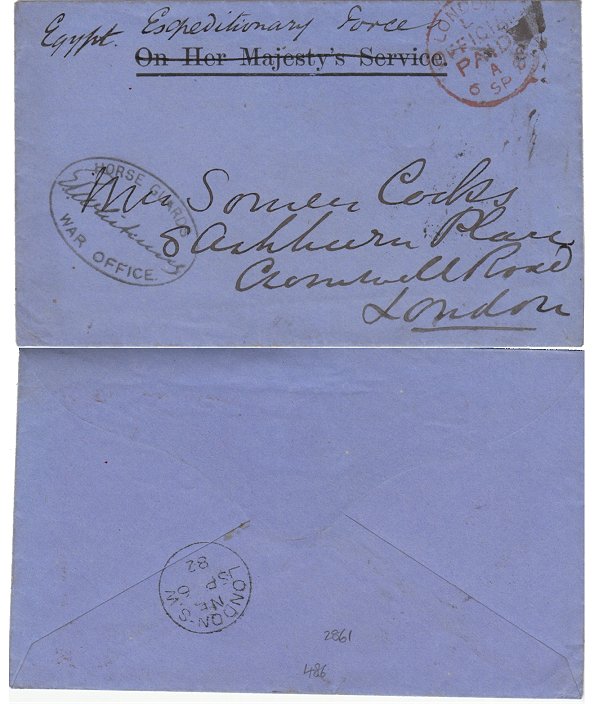 Egypt. Expeditionary Force
On Her Majesty's Service.
LONDON
OFFICIAL
PAID
A
6 SP 82
HORSE GUARDS
WAR OFFICE.
Mrs Somers Cocks
8 Ashburn Place
Cromwell Road
London
LONDON. S.W
NE
SP 6
82
2861
486